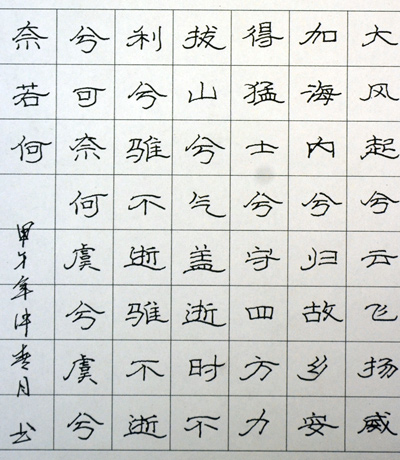 大风起兮云飞扬威
加海内兮归故乡安
得猛士兮守四方力
拔山兮气盖逝时不
利兮骓不逝骓不逝
兮可奈何虞兮虞兮
奈若何
甲午年仲春月书